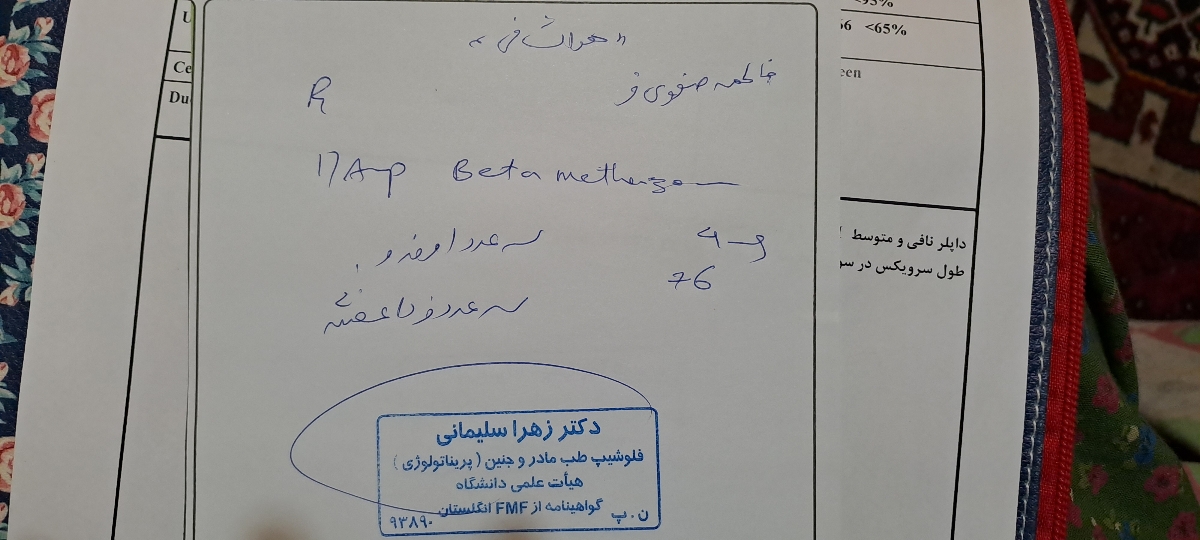 <95%
U
66 <65%
Ce
een
Du
«هوالشافی»
فاطمه صفوی فر
R
1) Amp Betamethasone
4mg
سه عدد امروز و
N=6
سه عدد فردا عضلانی
داپلر نافی و متوسط
طول سرویکس در سو
دکتر زهرا سلیمانی
فلوشیپ طب مادر و جنین (پریناتولوژی)
هیأت علمی دانشگاه
گواهینامه از FMF انگلستان
ن.پ ۹۳۸۹۰